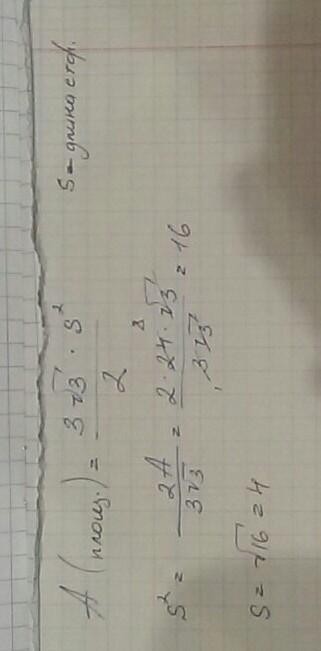 A (площ.) = 3√3 · s² / 2    s = длина стор.
s² = 2A / 3√3 = 2 · 24 · √3 / 3√3 = 16
8
s = √16 = 4